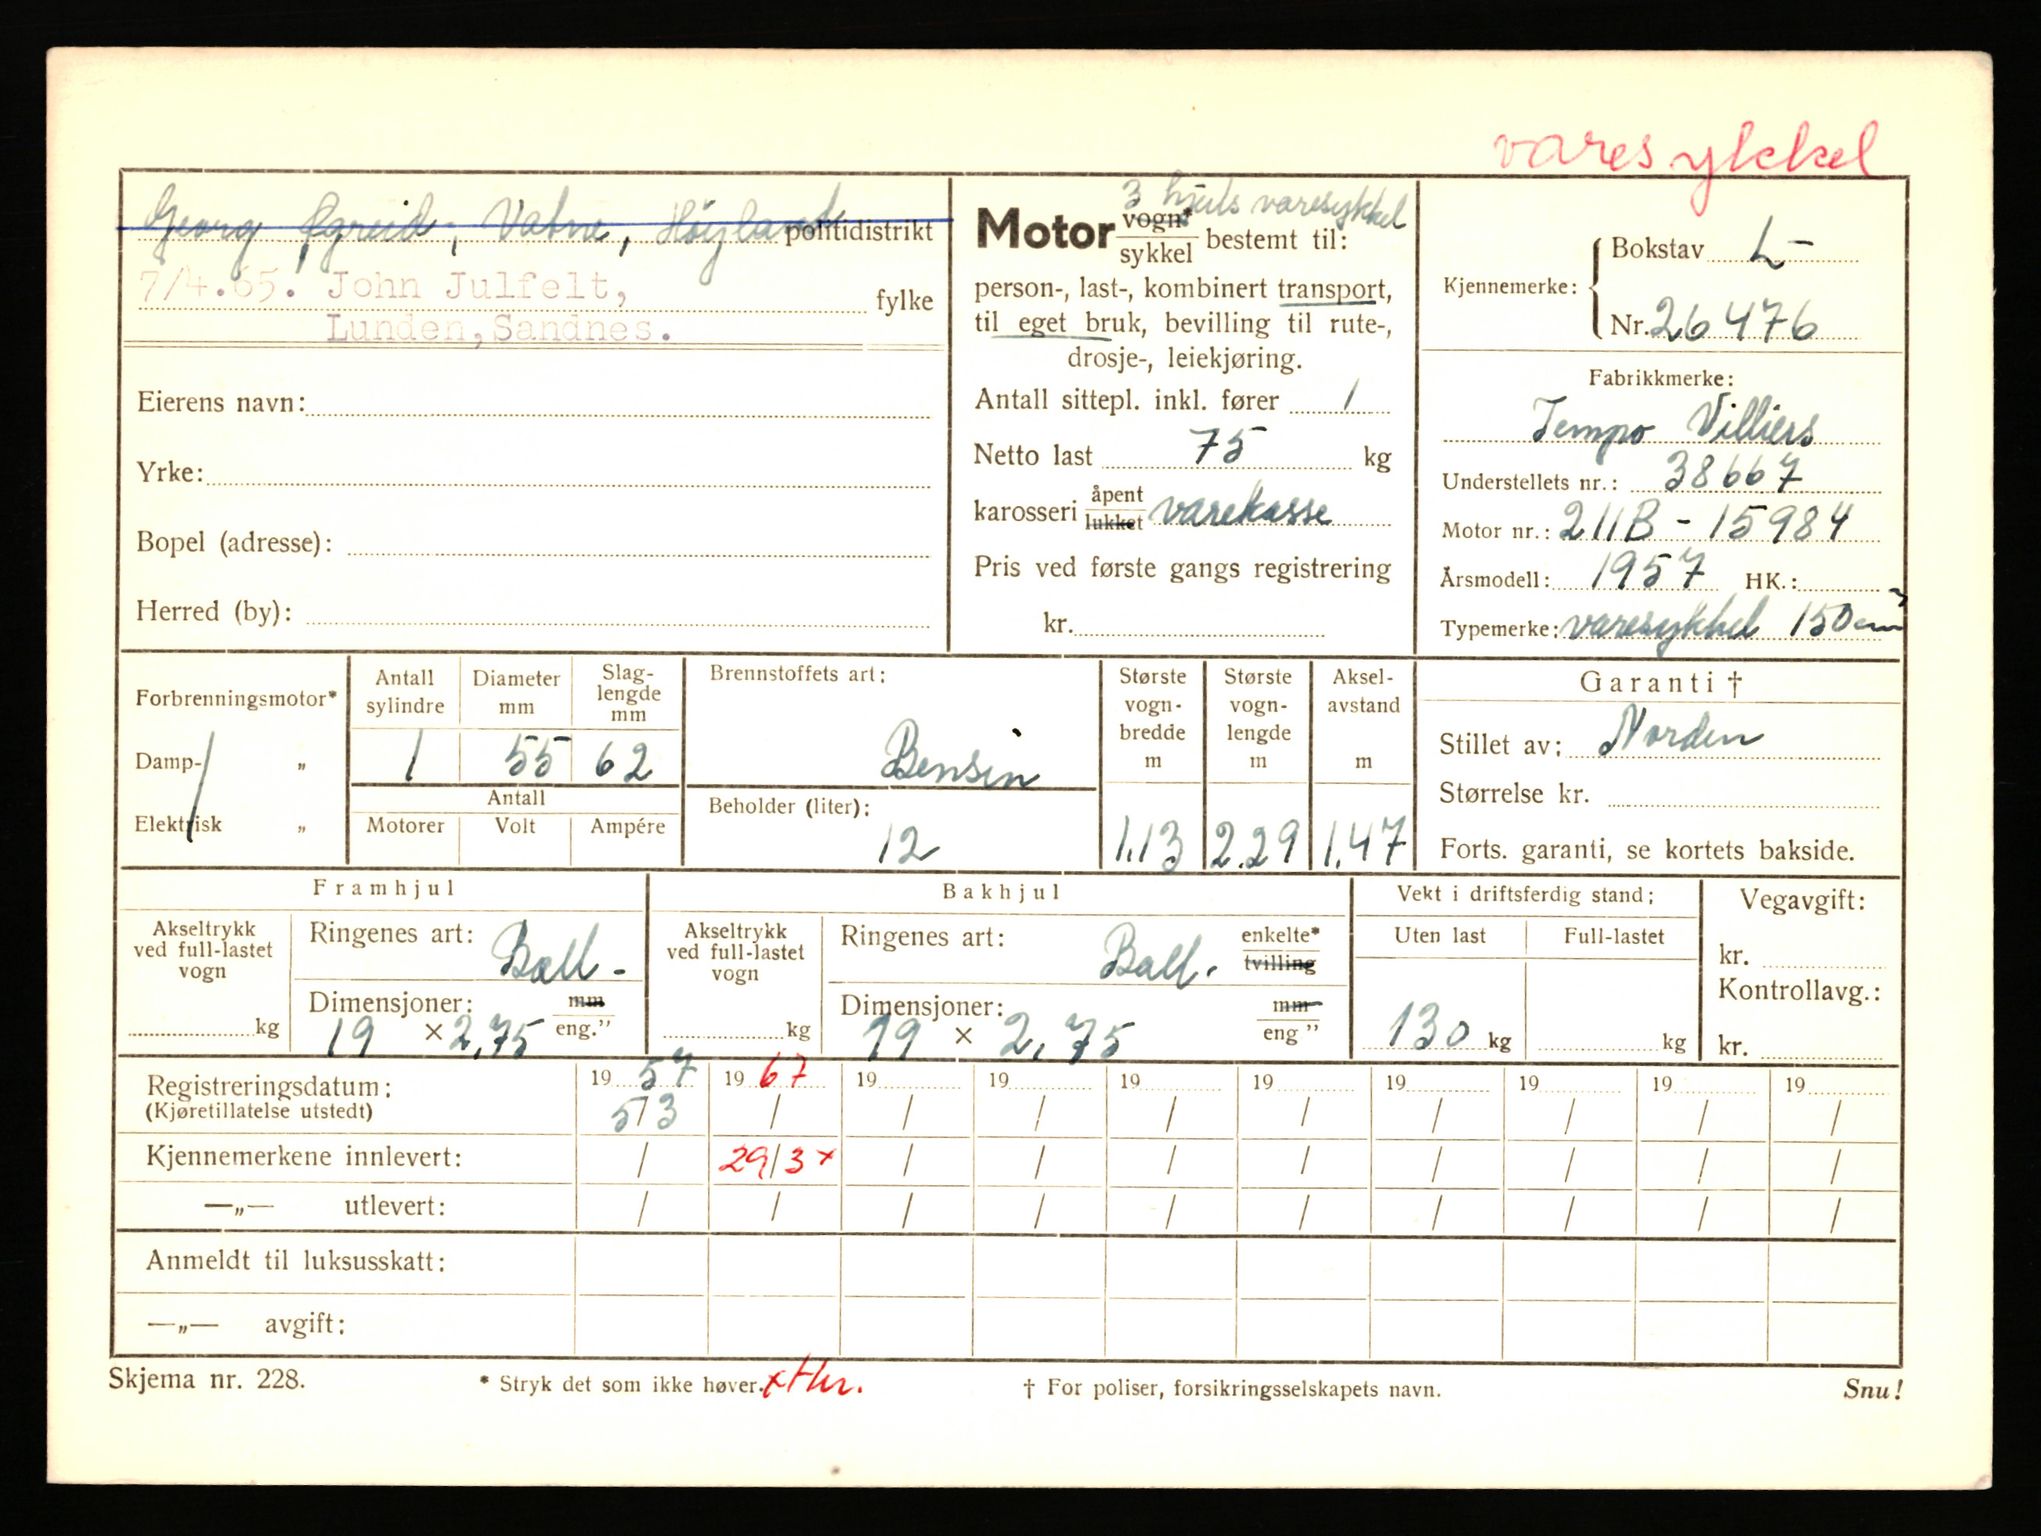 varesykkel
Georg Øgreid, Vatne, Höyland politidistrikt
7/4.65. John Julfelt, fylke
Lunden, Sandnes.
Eierens navn:
Yrke:
Bopel (adresse):
Herred (by):
3 hjuls varesykkel
Motor vogn* sykkel bestemt til:
person-, last-, kombinert transport,
til eget bruk, bevilling til rute-,
drosje-, leiekjøring.
Antall sittepl. inkl. fører 1
Netto last 75 kg
karosseri åpent lukket varekasse
Pris ved første gangs registrering
kr.
Kjennemerke: { Bokstav L-
Nr. 26476
Fabrikkmerke:
Tempo Villiers
Understellets nr.: 38667
Motor nr.: 211B - 15984
Årsmodell: 1957 HK.:
Typemerke: varesykkel 150 cm³
Forbrenningsmotor*
Damp- „
Elektrisk „
Antall sylindre
Diameter mm
Slag- lengde mm
1 55 62
Antall
Motorer Volt Ampére
Brennstoffets art:
Bensin
Beholder (liter):
12
Største vogn- bredde m
1.13
Største vogn- lengde m
2.29
Aksel- avstand m
1.47
Garanti †
Stillet av: Norden
Størrelse kr.
Forts. garanti, se kortets bakside.
Framhjul
Akseltrykk ved full-lastet vogn
kg
Ringenes art: Ball-
Dimensjoner: mm
19 × 2,75 eng.”
Bakhjul
Akseltrykk ved full-lastet vogn
kg
Ringenes art: Ball. enkelte* tvilling
Dimensjoner: mm
19 × 2,75 eng ”
Vekt i driftsferdig stand:
Uten last Full-lastet
130 kg kg
Vegavgift:
kr.
Kontrollavg.:
kr.
Registreringsdatum: 19 57 19 67 19 19 19 19 19 19 19 19
(Kjøretillatelse utstedt) 5/3 / / / / / / / / /
Kjennemerkene innlevert: / 29/3 x / / / / / / / /
—„— utlevert: / / / / / / / / / /
Anmeldt til luksusskatt:
—„— avgift:
Skjema nr. 228. * Stryk det som ikke høver. † For poliser, forsikringsselskapets navn. Snu!